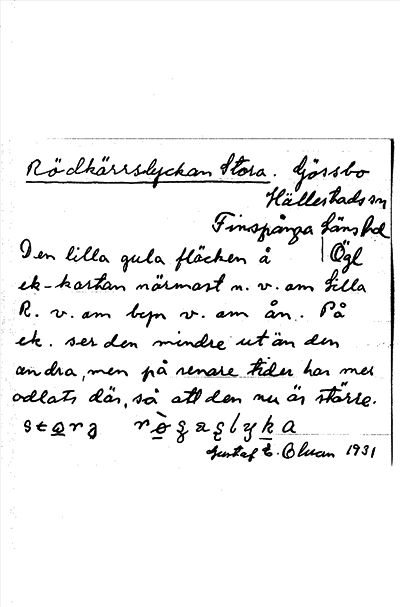 Rödkärrslyckan Stora. Görsbo
Hällestads sn
Finspånga läns hd
Den lilla gula fläcken å Ögl
ek-kartan närmast n. v. om Lilla
R. v. om byn v. om ån. På
ek. ser den mindre ut än den
andra, men på renare tider har mer
odlats där, så att den nu är större.
Gustaf E. 1931